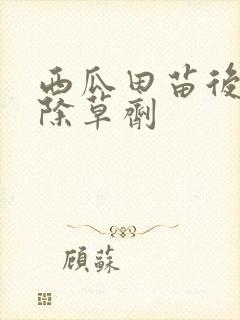 西瓜田苗後
除草劑
顧蘇